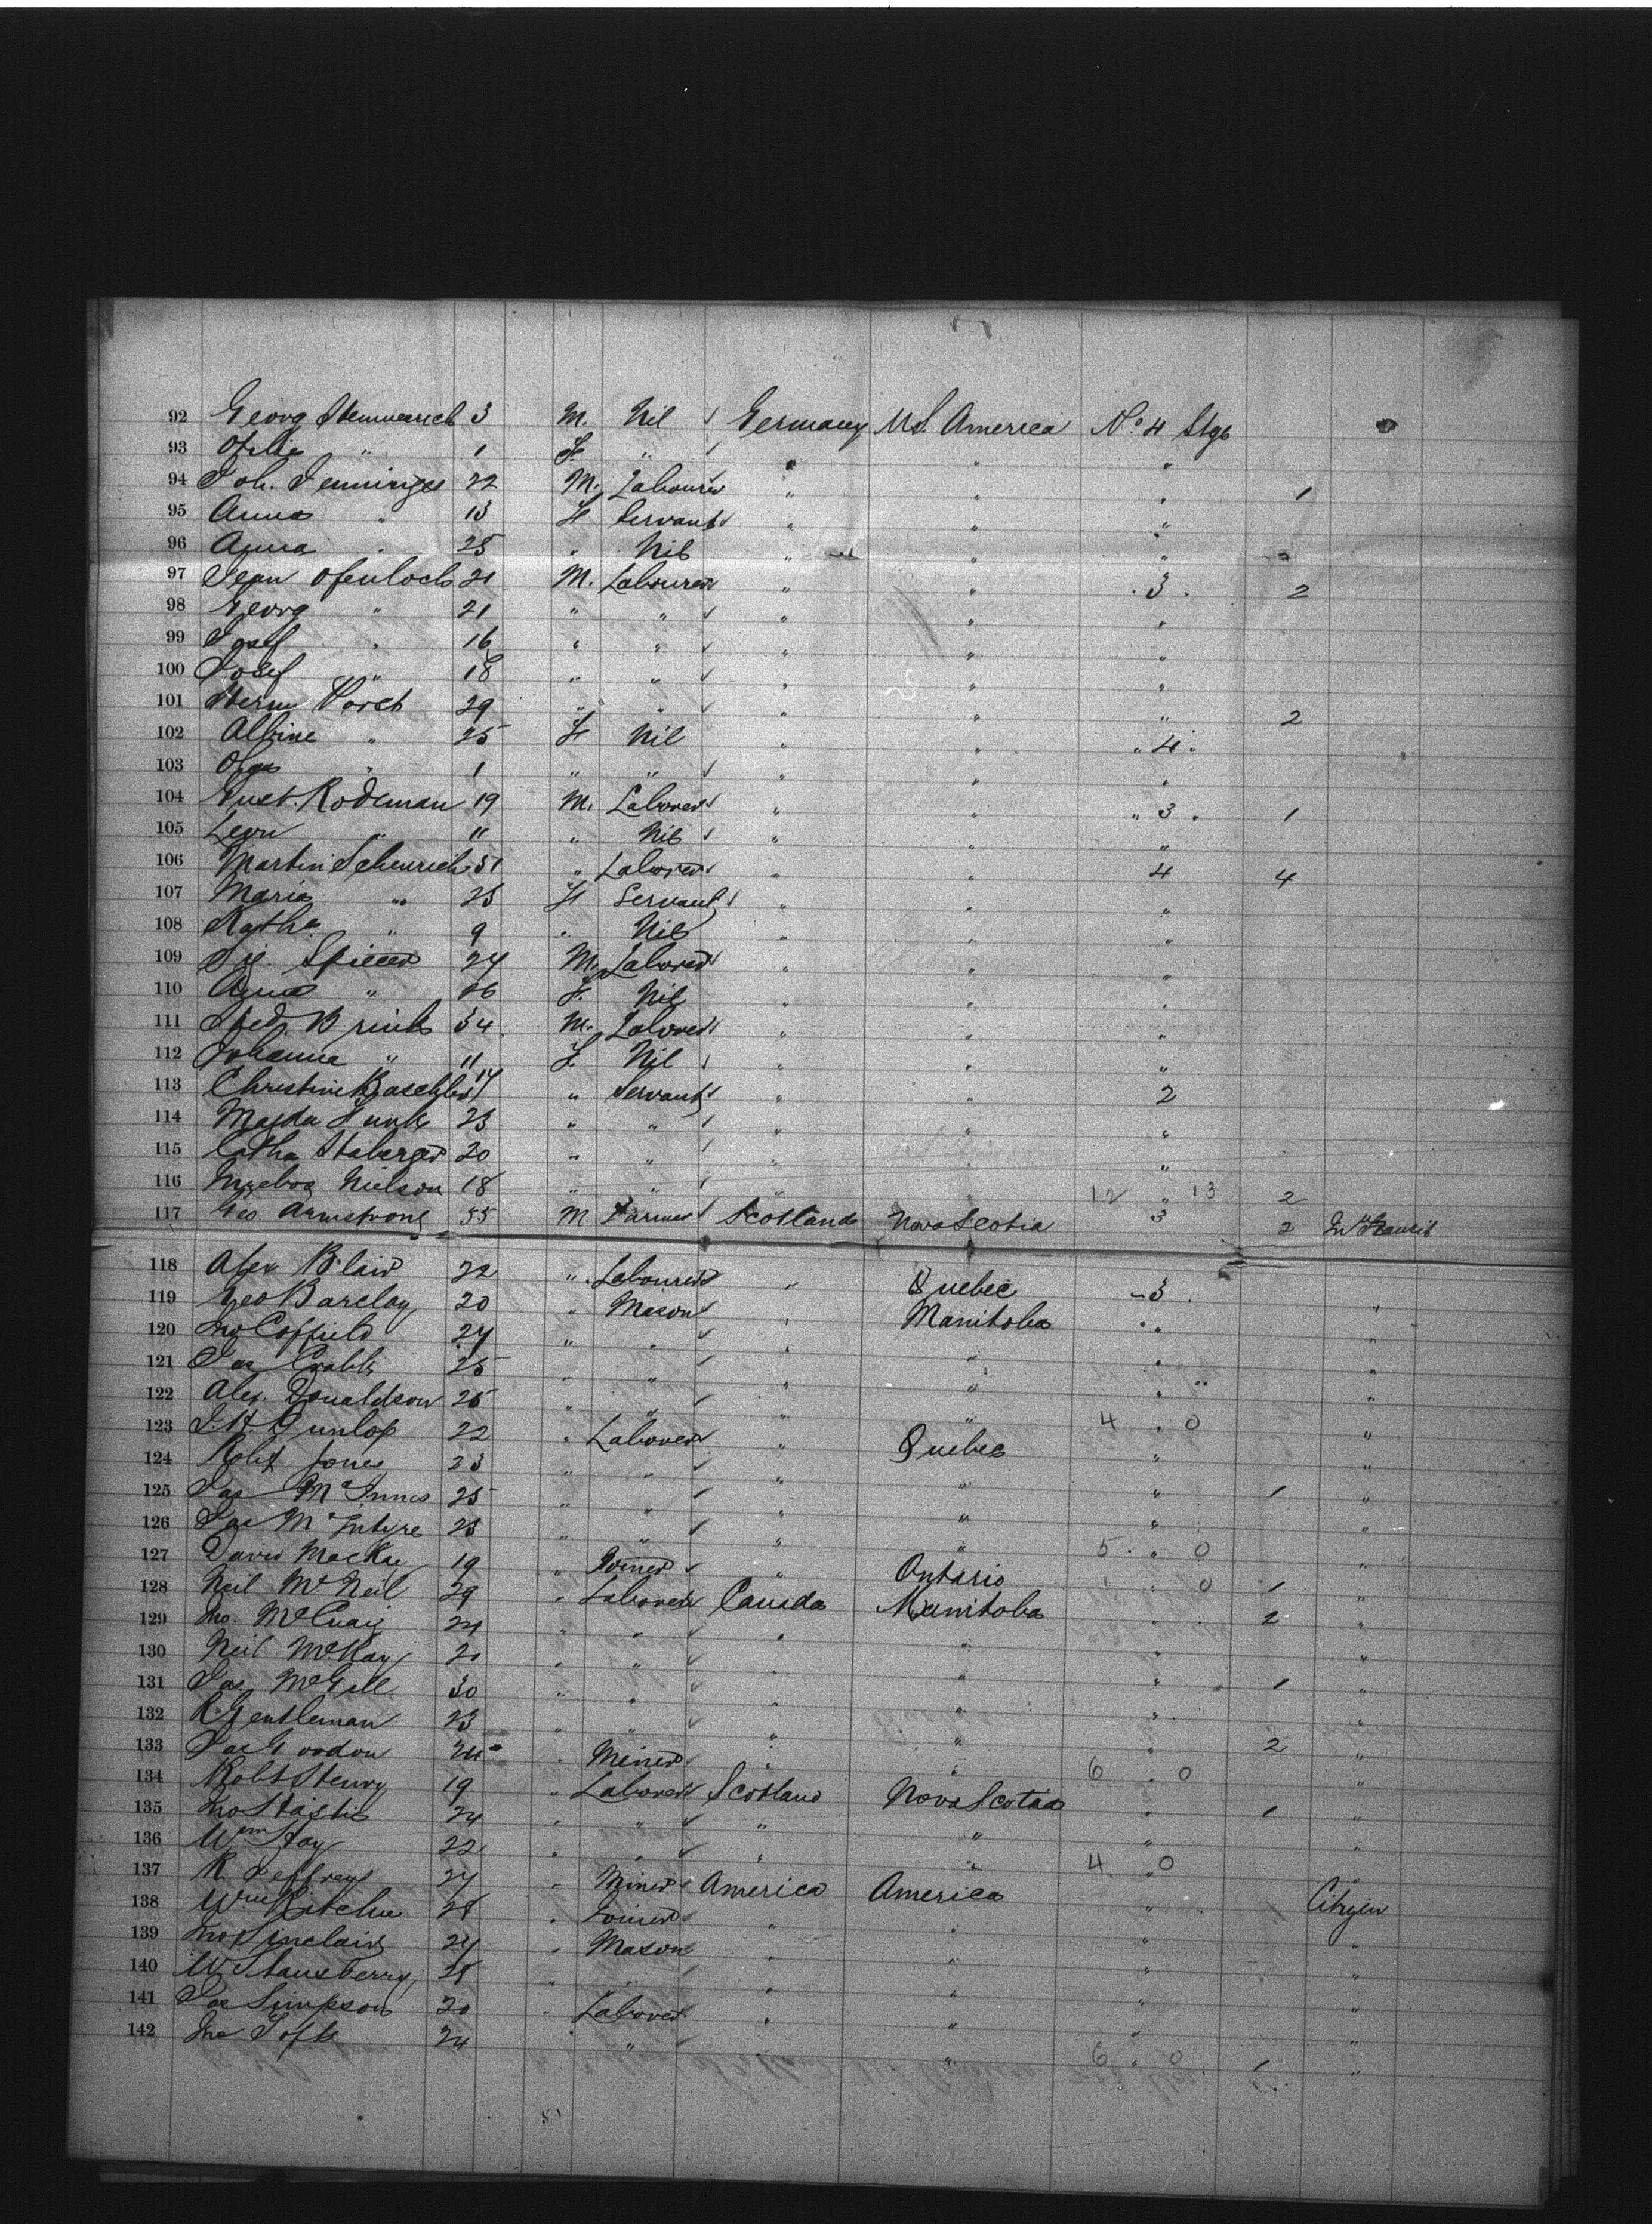 92 Georg 3 M. Nil Germany U.S. America No 4 Stge
93 " 1 F. " " " "
94 Joh. Jenninges 22 M. Labourer " " " 1
95 Anna " 13 F Servant " " "
96 Anna " 25 " Nil " " "
97 Jean Ofenloch 21 M. Labourer " " " 3 " 2
98 Georg " 21 " " " " "
99 Josef " 16 " " " " "
100 Josef " 18 " " " " "
101 Herm 29 " " " " " 2
102 Albine " 25 F Nil " " " 4 "
103 Olga " 1 " " " " "
104 Gust. Rodeman 19 M. Laborer " " " 3 " 1
105 Leon " 11 " Nil " " "
106 Martin Scheurich 51 " Laborer " " 4 4
107 Maria " 23 F Servant " " "
108 Katha " 9 " Nil " " "
109 24 M. Laborer " " "
110 Anna " 26 F. Nil " " "
111 Fred. Brink 34 M. Laborer " " "
112 Johanna " 11 F. Nil " " "
113 Christine 17 " Servant " " 2
114 Magda Funk 23 " " " " "
115 Catha 20 " " " " "
116 Ingebog Nielson 18 " " " " 12 " 13 2
117 Geo. Armstrong 55 M Farmer Scotland Nova Scotia 3 2 In Transit
118 Alex Blair 22 " Labourer " Quebec - 3 "
119 Geo Barclay 20 " Mason " Manitoba " "
120 Jno Coffield 24 " " " " " "
121 Jas Crabb 25 " " " " " "
122 Alex. Donaldson 25 " " " " 4 " 0 "
123 J. H. Dunlop 22 " Laborer " Quebec " "
124 Robt Jones 23 " " " " " 1 "
125 Jas McInnes 25 " " " " " "
126 Jas McIntyre 23 " " " " 5 " 0 "
127 David MacKay 19 " Joiner " Ontario " 0 1 "
128 Neil McNeil 29 " Laborer Canada Manitoba " 2 "
129 Jno. McCuaig 24 " " " " " "
130 Neil McKay " " " " " 1 "
131 Jas. McGill 30 " " " " " "
132 R Gentleman 23 " " " " " 2 "
133 Jas Gordon 24 " Miner " " 6 " 0 "
134 Robt Henry 19 " Laborer Scotland Nova Scotia " 1 "
135 Jno 24 " " " " " "
136 Wm Hay 22 " " " " 4 " 0 "
137 R Jeffrey 27 " Miner America America " 1 Citizen
138 Wm Ritchie 28 " Joiner " " " "
139 Jno Sinclair 24 " Mason " " " "
140 W Stansberry 28 " " " " " "
141 Jas Simpson 20 " Laborer " " " "
142 Jno 24 " " " 6 " 0 1 "